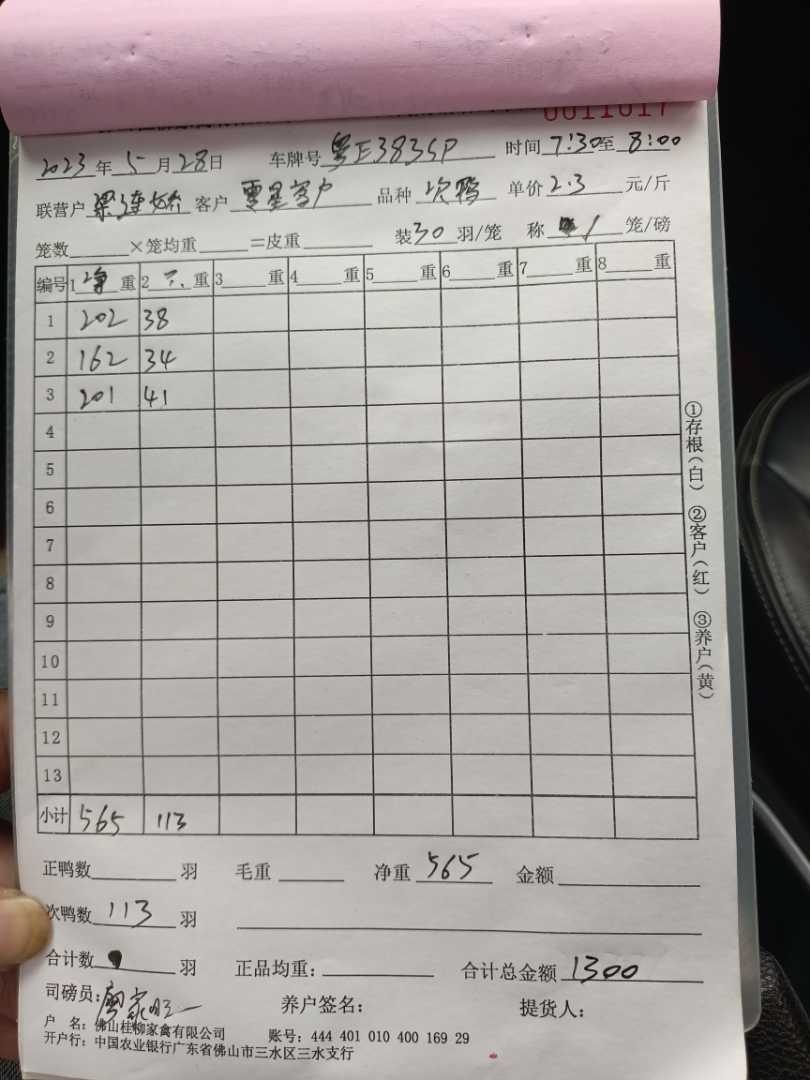 0011017
2023年5月28日 车牌号粤E383SP 时间7:30至8:00
联营户梁连 客户零星客户 品种次鸭 单价2.3元/斤
笼数 ×笼均重 =皮重 装30羽/笼 称1笼/磅
编号 1净重 2 重 3 重 4 重 5 重 6 重 7 重 8 重
1 202 38
2 162 34
3 201 41
4
5
6
7
8
9
10
11
12
13
小计 565 113
正鸭数 羽 毛重 净重565 金额
次鸭数113羽
合计数 羽 正品均重: 合计总金额1300
司磅员:廖家旺 养户签名: 提货人:
户 名:佛山桂柳家禽有限公司 账号:444 401 010 400 169 29
开户行:中国农业银行广东省佛山市三水区三水支行
①存根(白) ②客户(红) ③养户(黄)